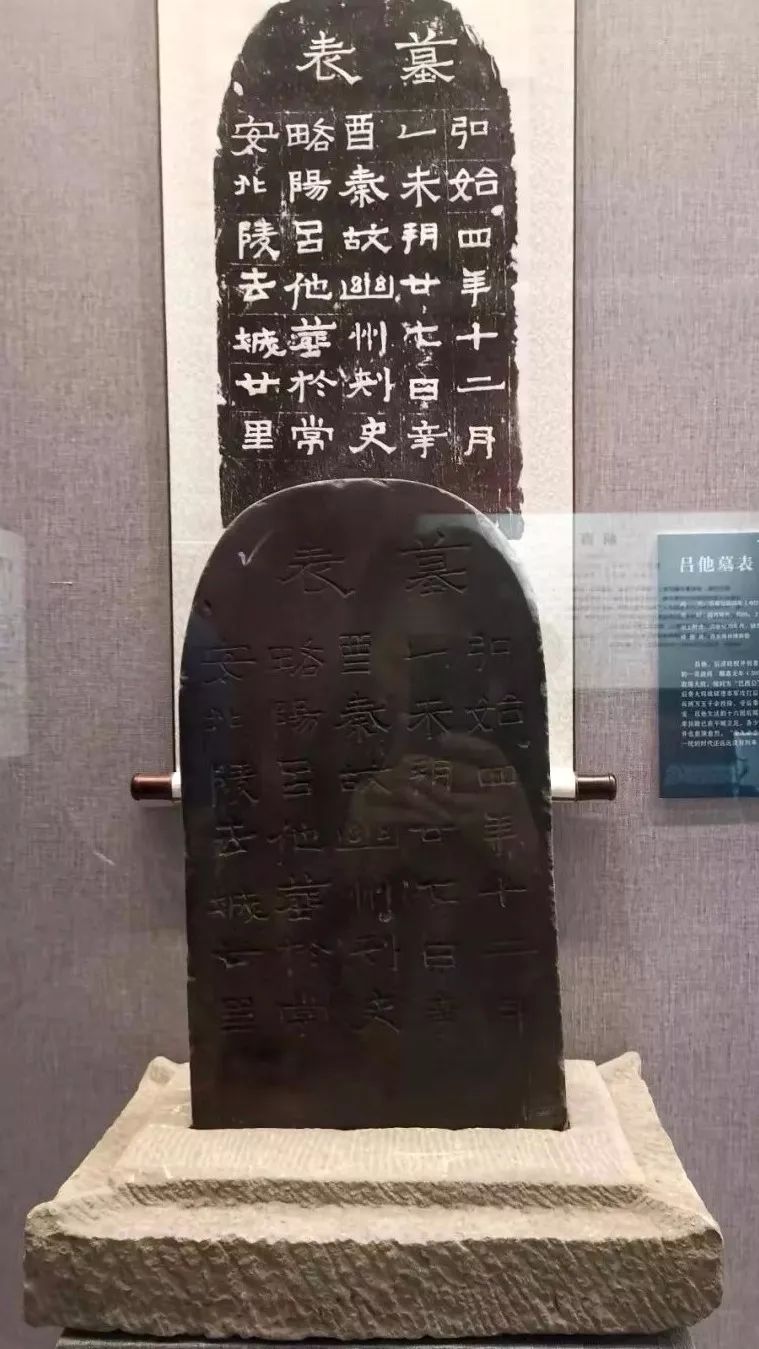 墓表
弘始四年十二月
乙未朔廿七日辛
酉秦故幽州刺史
略陽呂他葬於常
安北陵去城廿里
墓表
弘始四年十二月
乙未朔廿七日辛
酉秦故幽州刺史
略陽呂他葬於常
安北陵去城廿里
吕他墓表